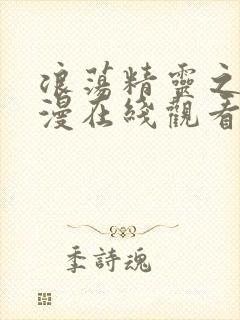 浪蕩精靈之
漫在綫觀看
季詩魂